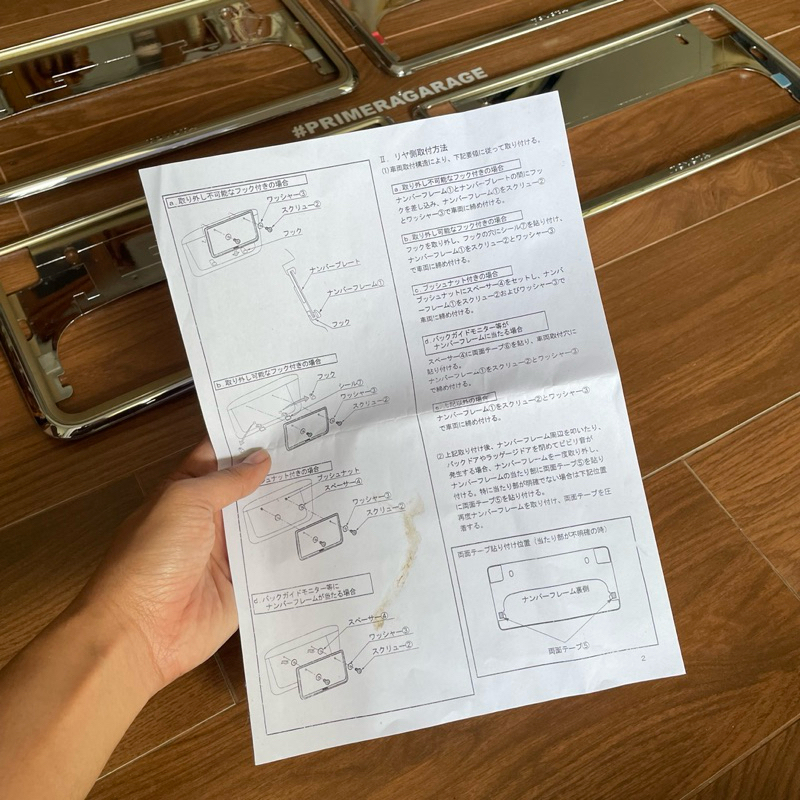 #PRIMERA'GARAGE
a. 取り外し不可能なフック付きの場合
ワッシャー③
スクリュー②
フック
ナンバープレート
ナンバーフレーム①
フック
b. 取り外し可能なフック付きの場合
フック
シール⑦
ワッシャー③
スクリュー②
ュナット付きの場合
プッシュナット
スペーサー④
ワッシャー③
スクリュー②
d. バックガイドモニター等に
ナンバーフレームが当たる場合
スペーサー④
ワッシャー③
スクリュー②
Ⅱ. リヤ側取付方法
(1)車両取付構造により、下記要領に従って取り付ける。
a. 取り外し不可能なフック付きの場合
ナンバーフレーム①とナンバープレートの間にフッ
クを差し込み、ナンバーフレーム①をスクリュー②
とワッシャー③で車両に締め付ける。
b. 取り外し可能なフック付きの場合
フックを取り外し、フックの穴にシール⑦を貼り付け、
ナンバーフレーム①をスクリュー②とワッシャー③
で車両に締め付ける。
c. プッシュナット付きの場合
プッシュナットにスペーサー④をセットし、ナンバ
ーフレーム①をスクリュー②およびワッシャー③で
車両に締め付ける。
d. バックガイドモニター等が
ナンバーフレームに当たる場合
スペーサー④に両面テープ⑥を貼り、車両取付穴に
貼り付ける。
ナンバーフレーム①をスクリュー②とワッシャー③
で締め付ける。
の場合
ナンバーフレーム①をスクリュー②とワッシャー③
で車両に締め付ける。
(2)上記取り付け後、ナンバーフレーム周辺を叩いたり、
バックドアやラッゲージドアを閉めてビビリ音が
発生する場合、ナンバーフレームを一度取り外し、
ナンバーフレームの当たり部に両面テープ⑤を貼り
付ける。特に当たり部が明確でない場合は下記位置
に両面テープ⑤を貼り付ける。
再度ナンバーフレームを取り付け、両面テープを圧
着する。
両面テープ貼り付け位置（当たり部が不明確の時）
ナンバーフレーム裏側
両面テープ⑤
2